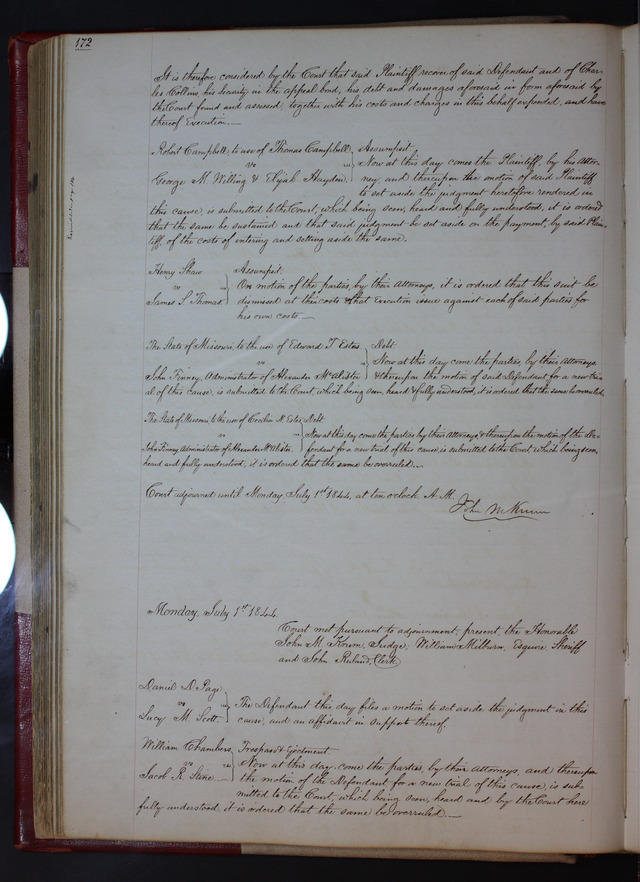 172
It is therefore considered by the Court that said Plaintiff recover of said Defendant and of Char-
les Collins, his Security in the appeal bond, his debt and damages aforesaid in form aforesaid by
the Court found and assessed, together with his costs and charges in this behalf expended, and have
thereof Execution.—
Robert Campbell, to use of Thomas Campbell } Assumpsit.
vs } Now at this day comes the Plaintiff, by his Attor-
George M. Willing & Elijah Hayden. } ney and thereupon the motion of said Plaintiff
to set aside the judgment heretofore rendered in
this cause, is submitted to the Court, which being seen, heard and fully understood, it is ordered
that the same be sustained and that said judgment be set aside on the payment, by said Plain-
tiff, of the costs of entering and setting aside the same.
Henry Shaw } Assumpsit.
vs } On motion of the parties, by their Attorneys, it is ordered that this suit be
James S. Thomas } dismissed at their costs & that Execution issue against each of said parties for
his own costs.—
The State of Missouri, to the use of Edward T. Estes } Debt.
vs } Now at this day come the parties, by their Attorneys
John Finney, Administrator of Alexander McAlister } & thereupon the motion of said Defendant for a new tri-
al of this cause, is submitted to the Court, which being seen, heard & fully understood, it is ordered that the same be overruled.
The State of Missouri to the use of H. Estes } Debt.
vs } Now at this day come the parties by their Attorneys & thereupon the motion of the De-
John Finney Administrator of Alexander McAlister. } fendant for a new trial of this cause, is submitted to the Court, which being seen,
heard and fully understood, it is ordered that the same be overruled.—
Court adjourned until Monday, July 1st 1844, at ten o'clock A.M.
John M Krum
Monday, July 1st 1844.
Court met pursuant to adjournment; present, the Honorable
John M. Krum, Judge, William Milburn, Esquire Sheriff
and John Ruland, Clerk
Daniel D. Page }
vs } The Defendant this day files a motion to set aside the judgment in this
Lucy M. Scott } cause, and an affidavit in support thereof.
William Chambers, } Trespass & Ejectment
vs } Now at this day come the parties, by their Attorneys, and thereupon
Jacob R. Stine.— } the motion of the Defendant for a new trial of this cause, is sub-
mitted to the Court, which being seen, heard and by the Court here
fully understood it is ordered that the same be overruled.—